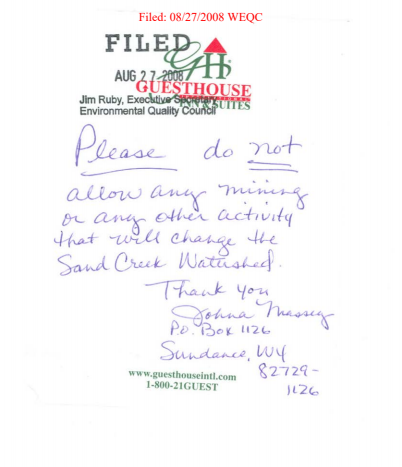 Filed: 08/27/2008 WEQC
FILED
GH
AUG 27 2008
GUESTHOUSE
Jim Ruby, Executive Secretary
INTERNATIONAL
INN & SUITES
Environmental Quality Council
Please do not
allow any mining
or any other activity
that will change the
Sand Creek Watershed.
Thank you
Johna Massey
P.O. Box 1126
Sundance, WY
82729-
1126
www.guesthouseintl.com
1-800-21GUEST